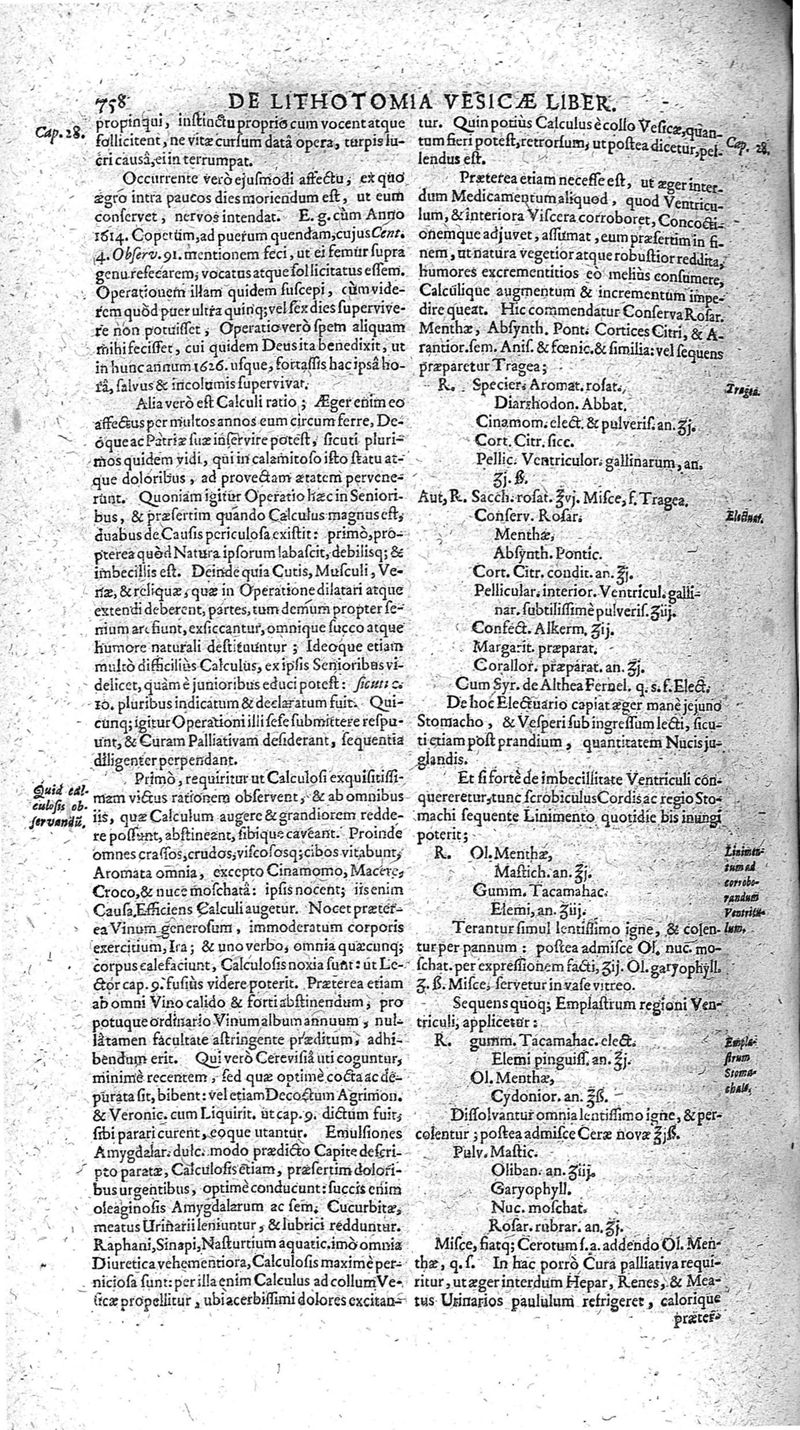 758 DE LITHOTOMIA VESICÆ LIBER.
Cap. 28.
propinqui, instinctu proprio cum vocent atque
sollicitent, ne vitæ cursum datâ opera, turpis lu-
cri causâ, ei interrumpat.
Occurrente verò ejusmodi affectu, ex quo
ægro intra paucos dies moriendum est, ut eum
conservet, nervos intendat. E. g. cùm Anno
1614. Copetum, ad puerum quendam, cujus Cent.
4. Observ. 91. mentionem feci, ut ei femur supra
genu resecarem; vocatus atque sollicitatus essem.
Operationem illam quidem suscepi, cùm vide-
rem quòd puer ultra quinq; vel sex dies supervive-
re non potuisset, Operatio verò spem aliquam
mihi fecisset, cui quidem Deus ita benedixit, ut
in hunc annum 1626. usque, fortassis hac ipsâ ho-
râ, salvus & incolumis supervivat.
Alia verò est Calculi ratio; Æger enim eo
affectus per multos annos eum circum ferre, De-
óque ac Patriæ suæ inservire potest, sicuti pluri-
mos quidem vidi, qui in calamitoso isto statu at-
que doloribus, ad provectam ætatem pervene-
runt. Quoniam igitur Operatio hæc in Seniori-
bus, & præsertim quando Calculus magnus est,
duabus de Causis periculosa existit: primò, pro-
pterea quòd Natura ipsorum labascit, debilisq; &
imbecillis est. Deinde quia Cutis, Musculi, Ve-
næ, & reliquæ, quæ in Operatione dilatari atque
extendi deberent, partes, tum demum propter se-
nium arefiunt, exsiccantur, omnique succo atque
humore naturali destituuntur; Ideoque etiam
multò difficiliùs Calculus, ex ipsis Senioribus vi-
delicet, quàm è junioribus educi potest: sicuti c.
10. pluribus indicatum & declaratum fuit. Qui-
cunq; igitur Operationi illi sese submittere respu-
unt, & Curam Palliativam desiderant, sequentia
diligenter perpendant.
Quid cal-
culosis ob-
servandũ.
Primò, requiritur ut Calculosi exquisitissi-
mam victus rationem observent, & ab omnibus
iis, quæ Calculum augere & grandiorem redde-
re possunt, abstineant, sibique caveant. Proinde
omnes crassos, crudos, viscososq; cibos vitabunt,
Aromata omnia, excepto Cinamomo, Macere,
Croco, & nuce moschatâ: ipsis nocent; iis enim
Causa Efficiens Calculi augetur. Nocet præter-
ea Vinum generosum, immoderatum corporis
exercitium, Ira; & uno verbo, omnia quæcunq;
corpus calefaciunt, Calculosis noxia sunt: ut Le-
ctor cap. 9. fusiùs videre poterit. Præterea etiam
ab omni Vino calido & forti abstinendum, pro
potuque ordinario Vinum album annuum, nul-
lâ tamen facultate astringente præditum, adhi-
bendum erit. Qui verò Cerevisiâ uti coguntur,
minimè recentem, sed quæ optimè cocta ac de-
purata sit, bibent: vel etiam Decoctum Agrimon.
& Veronic. cum Liquirit. ut cap. 9. dictum fuit,
sibi parari curent, eoque utantur. Emulsiones
Amygdalar. dulc. modo prædicto Capite descri-
pto paratæ, Calculosis etiam, præsertim dolori-
bus urgentibus, optimè conducunt: succis enim
oleaginosis Amygdalarum ac sem. Cucurbitæ,
meatus Urinarii leniuntur, & lubrici redduntur.
Raphani, Sinapi, Nasturtium aquatic. imò omnia
Diuretica vehementiora, Calculosis maximè per-
niciosa sunt: per illa enim Calculus ad collum Ve-
sicæ propellitur, ubi acerbissimi dolores excitan-
tur. Quin potiùs Calculus è collo Vesicæ, quan-
tum fieri potest, retrorsum, ut postea dicetur, pel-
lendus est.
Cap. 28.
Præterea etiam necesse est, ut æger inter-
dum Medicamentum aliquod, quod Ventricu-
lum, & interiora Viscera corroboret, Concocti-
onemque adjuvet, assumat, eum præsertim in fi-
nem, ut natura vegetior atque robustior reddita,
humores excrementitios eò meliùs consumere,
Calculique augmentum & incrementum impe-
dire queat. Hic commendatur Conserva Rosar.
Menthæ, Absynth. Pont. Cortices Citri, & A-
rantior. sem. Anis. & fœnic. & similia: vel sequens
præparetur Tragea;
Tragea.
R. Specier. Aromat. rosat.
Diarshodon. Abbat.
Cinamom. elect. & pulveris. an. ʒj.
Cort. Citr. sicc.
Pellic. Ventriculor. gallinarum, an.
ʒj. ß.
Aut, R. Sacch. rosat. ℥vj. Misce, f. Tragea.
Electuar.
Conserv. Rosar.
Menthæ,
Absynth. Pontic.
Cort. Citr. condit. an. ℥j.
Pellicular. interior. Ventricul. galli-
nar. subtilissimè pulveris. ʒiij.
Confect. Alkerm. ʒij.
Margarit. præparat.
Corallor. præparat. an. ʒj.
Cum Syr. de Althea Fernel. q. s. f. Elect.
De hoc Electuario capiat æger manè jejuno
Stomacho, & Vesperi sub ingressum lecti, sicu-
ti etiam post prandium, quantitatem Nucis ju-
glandis.
Et si fortè de imbecillitate Ventriculi con-
quereretur, tunc scrobiculus Cordis ac regio Sto-
machi sequente Linimento quotidie bis inungi
poterit;
Linimen-
tum ad
corrobo-
randum
Ventricu-
lum.
R. Ol. Menthæ,
Mastich. an. ℥j.
Gumm. Tacamahac.
Elemi, an. ʒiij.
Terantur simul lentissimo igne, & colen-
tur per pannum: postea admisce Ol. nuc. mo-
schat. per expressionem facti, ʒij. Ol. garyophyll.
ʒ. ß. Misce, servetur in vase vitreo.
Sequens quoq; Emplastrum regioni Ven-
triculi, applicetur:
Empla-
strum
Stoma-
chale.
R. gumm. Tacamahac. elect.
Elemi pinguiss. an. ℥j.
Ol. Menthæ,
Cydonior. an. ℥ß.
Dissolvantur omnia lentissimo igne, & per-
colentur; postea admisce Ceræ novæ ℥jß.
Pulv. Mastic.
Oliban. an. ʒiij.
Garyophyll.
Nuc. moschat.
Rosar. rubrar. an. ʒj.
Misce, fiatq; Cerotum s. a. addendo Ol. Men-
thæ, q. s. In hac porrò Cura palliativa requi-
ritur, ut æger interdum Hepar, Renes, & Mea-
tus Urinarios paululum refrigeret, calorique
præter-